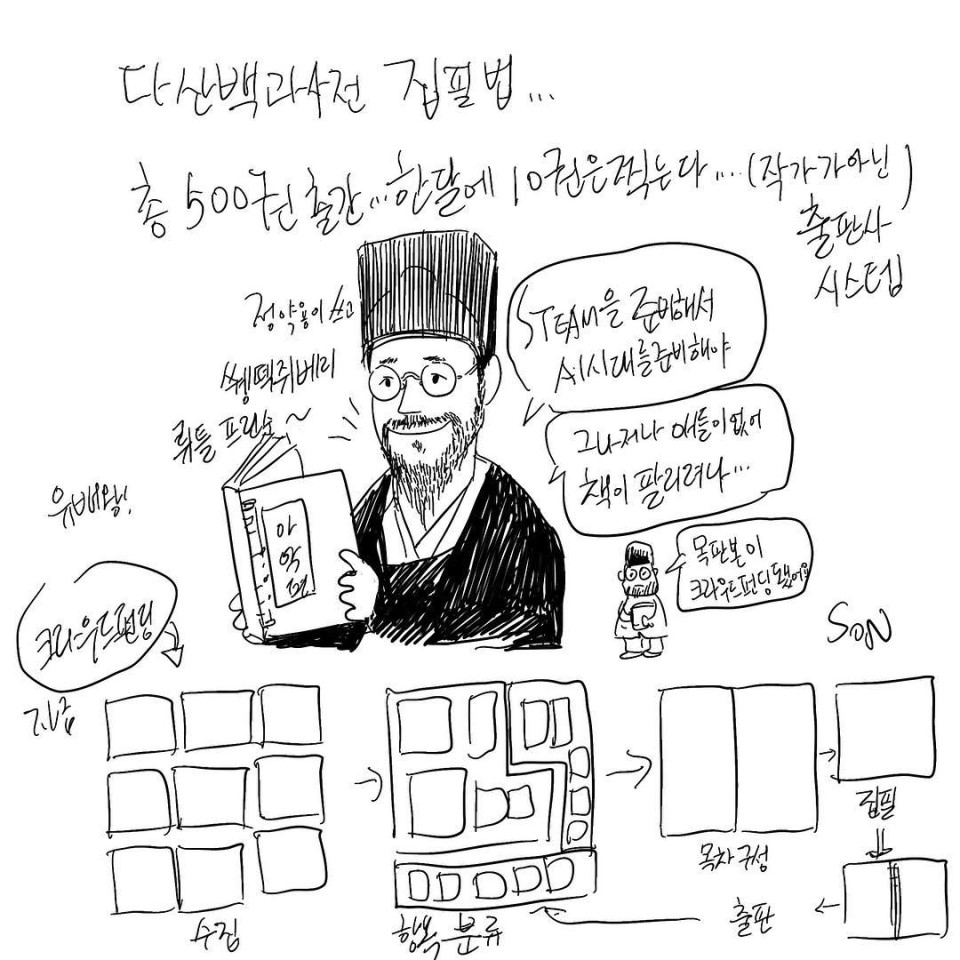 다산백과사전 집필법...
총 500권 출간...한달에 10권은찍는다....(작가가아닌)
출판사
시스템
정약용이 쓰고
쌩떽쥐베리
뤼틀 프린스~
STEAM을 준비해서
AI시대를준비해야
그나저나 애들이없어
책이 팔리려나...
유배왕!
아
악
편
목판본이
크라우드펀딩됐어요
크라우드펀딩
SON
수집
항목 분류
목차구성
집필
출판